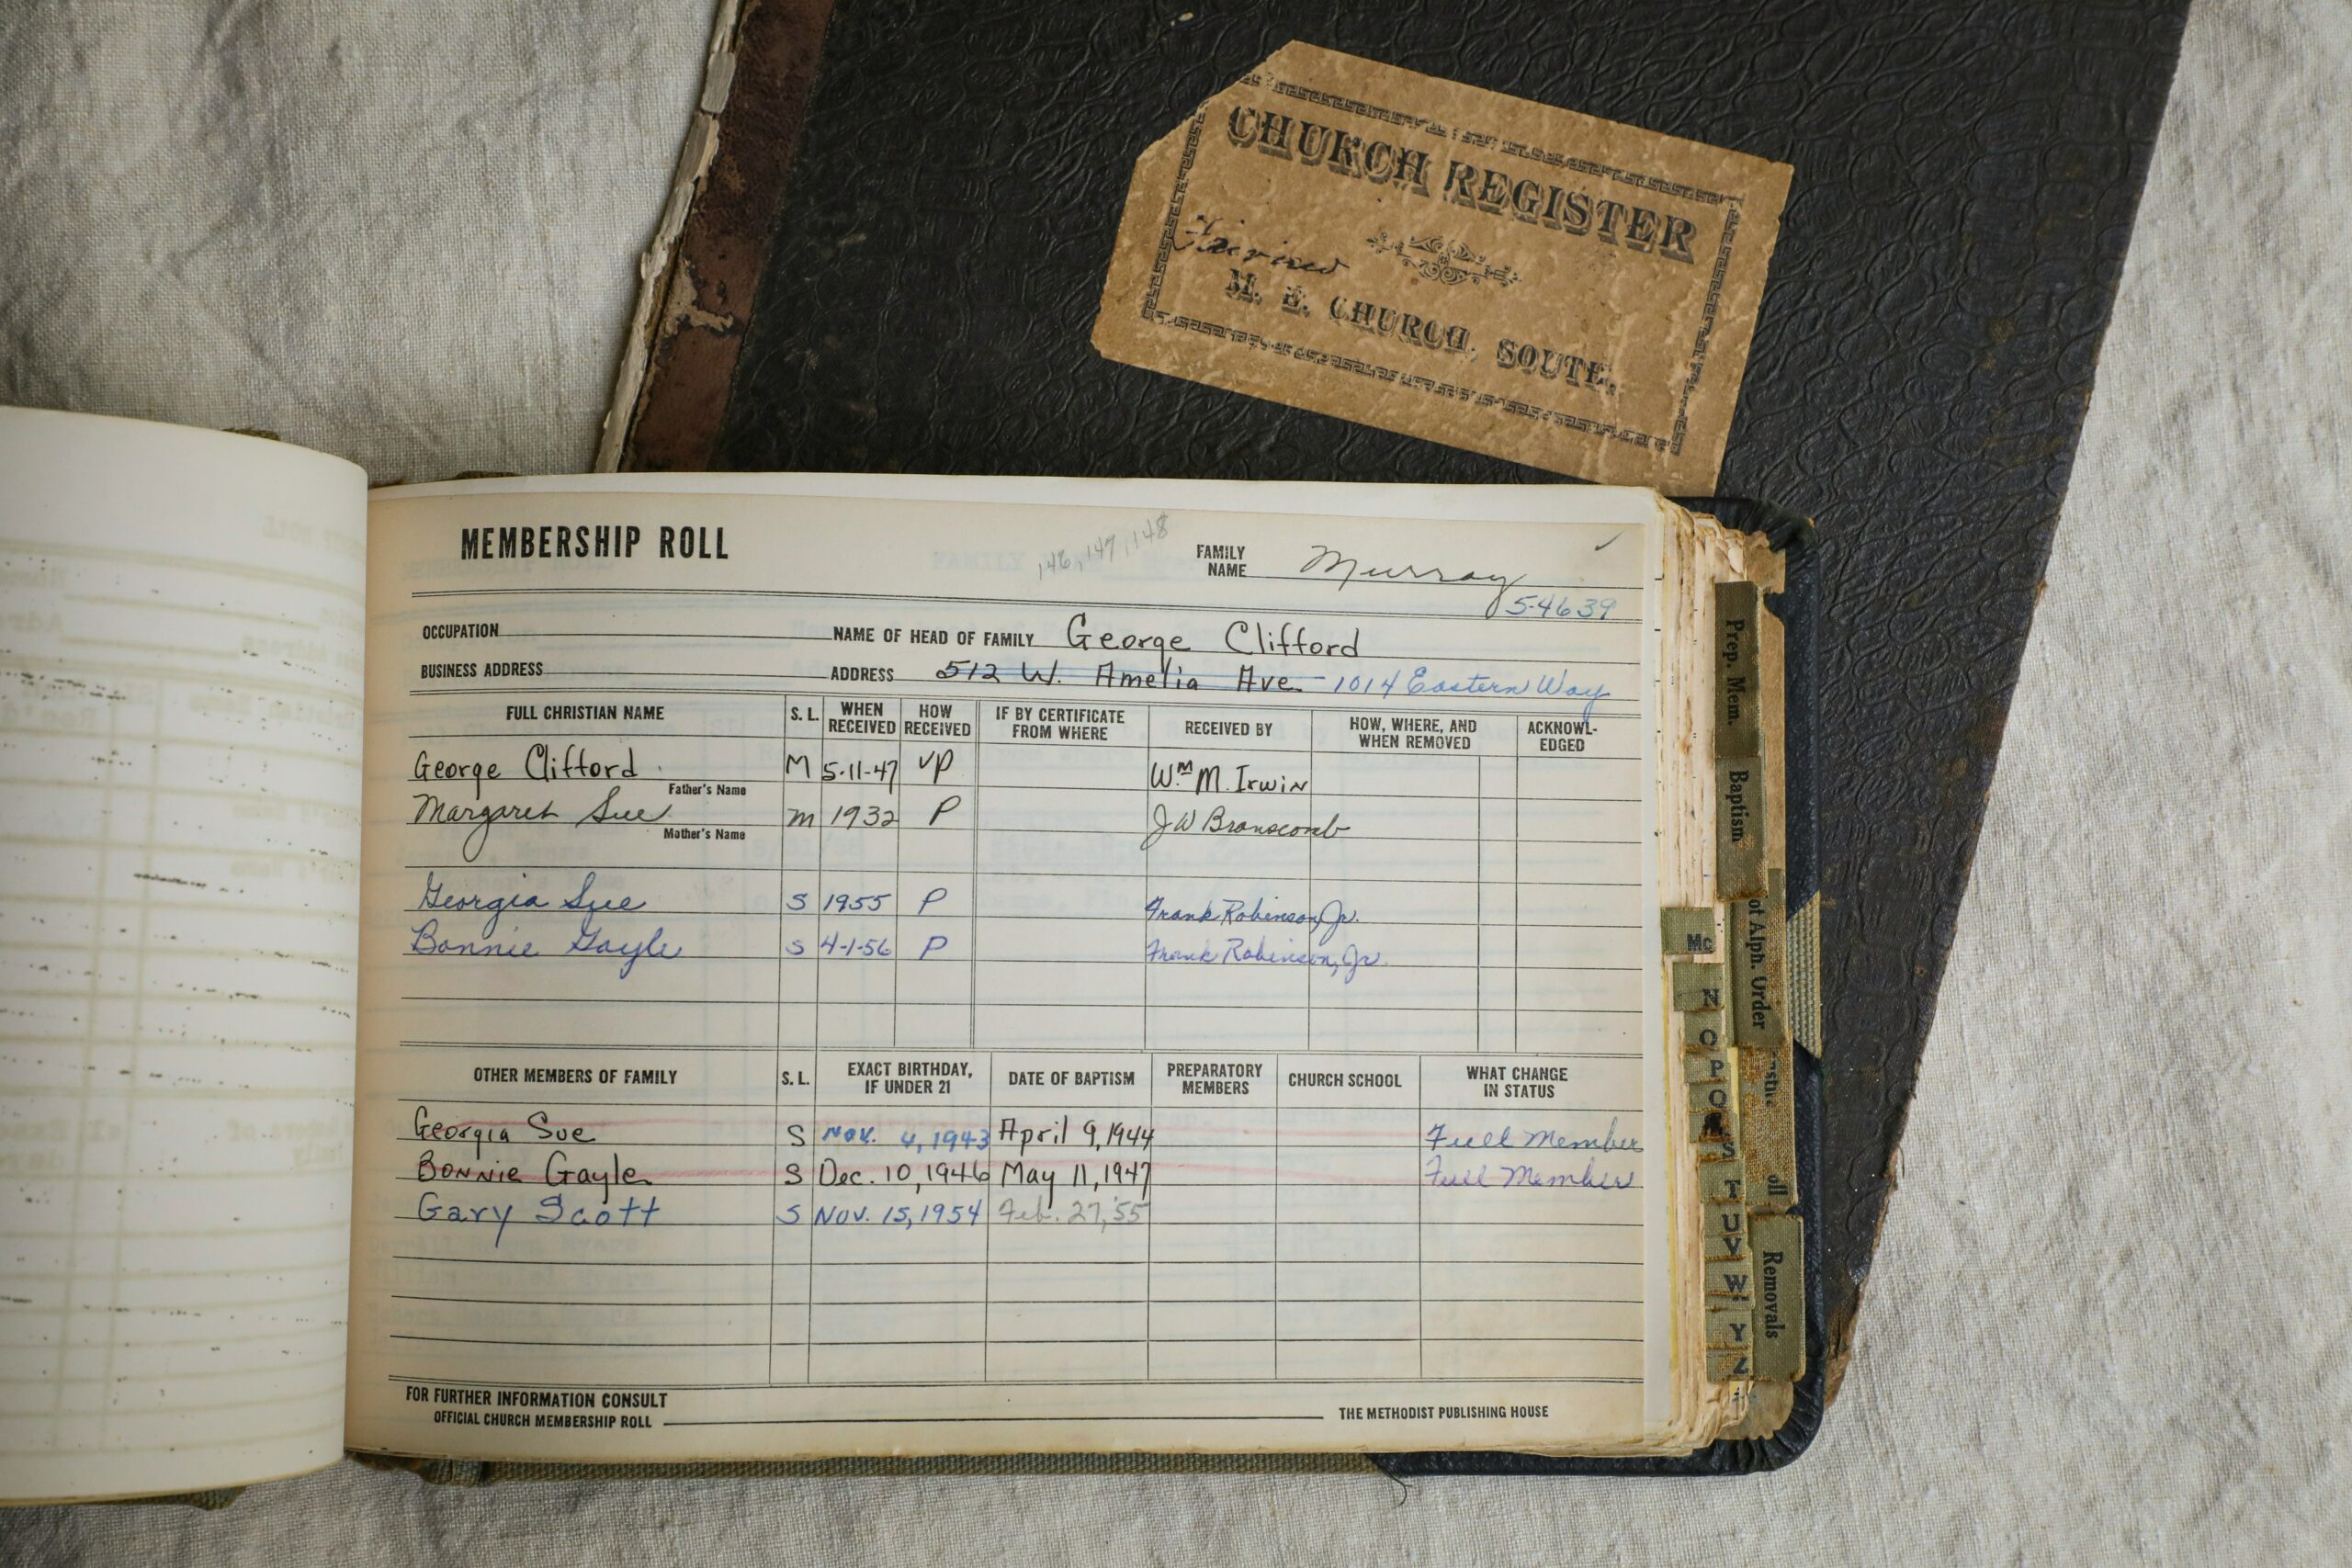 CHURCH REGISTER
M. E. CHURCH, SOUTH.
MEMBERSHIP ROLL
146, 147, 148
FAMILY NAME Murray
5-4639
OCCUPATION NAME OF HEAD OF FAMILY George Clifford
BUSINESS ADDRESS ADDRESS 512 W. Amelia Ave. 1014 Eastern Way
FULL CHRISTIAN NAME S. L. WHEN RECEIVED HOW RECEIVED IF BY CERTIFICATE FROM WHERE RECEIVED BY HOW, WHERE, AND WHEN REMOVED ACKNOWL-EDGED
George Clifford M 5-11-47 VP Wm M. Irwin
Father's Name
Margaret Sue M 1932 P J W Branscomb
Mother's Name
Georgia Sue S 1955 P Frank Robinson, Jr.
Bonnie Gayle S 4-1-56 P Frank Robinson, Jr.
OTHER MEMBERS OF FAMILY S. L. EXACT BIRTHDAY, IF UNDER 21 DATE OF BAPTISM PREPARATORY MEMBERS CHURCH SCHOOL WHAT CHANGE IN STATUS
Georgia Sue S Nov. 4, 1943 April 9, 1944 Full Member
Bonnie Gayle S Dec. 10, 1946 May 11, 1947 Full Member
Gary Scott S Nov. 15, 1954 Feb. 27, '55
FOR FURTHER INFORMATION CONSULT
OFFICIAL CHURCH MEMBERSHIP ROLL THE METHODIST PUBLISHING HOUSE
Prep. Mem.
Baptism
ot Alph. Order
Removals
Mc
N
O
P
Q
S
T
U
V
W
Y
Z